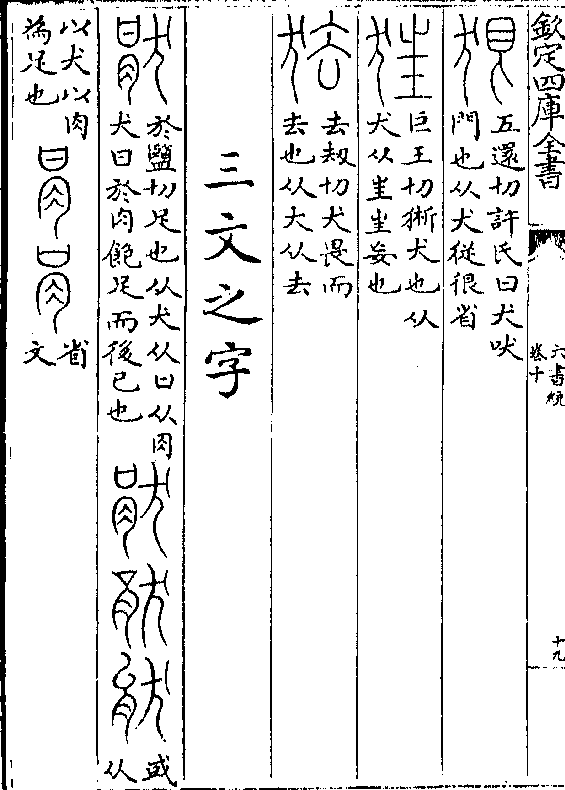 欽定四庫全書
六書統
卷十
十九
五還切許氏曰犬吠
門也从犬從很省
巨王切狾犬也从
犬从㞷㞷妄也
去刼切犬畏而
去也从犬从去
三文之字
於鹽切足也从犬从曰从肉
犬曰於肉飽足而後已也
或
从
以犬以肉
為足也
省
文